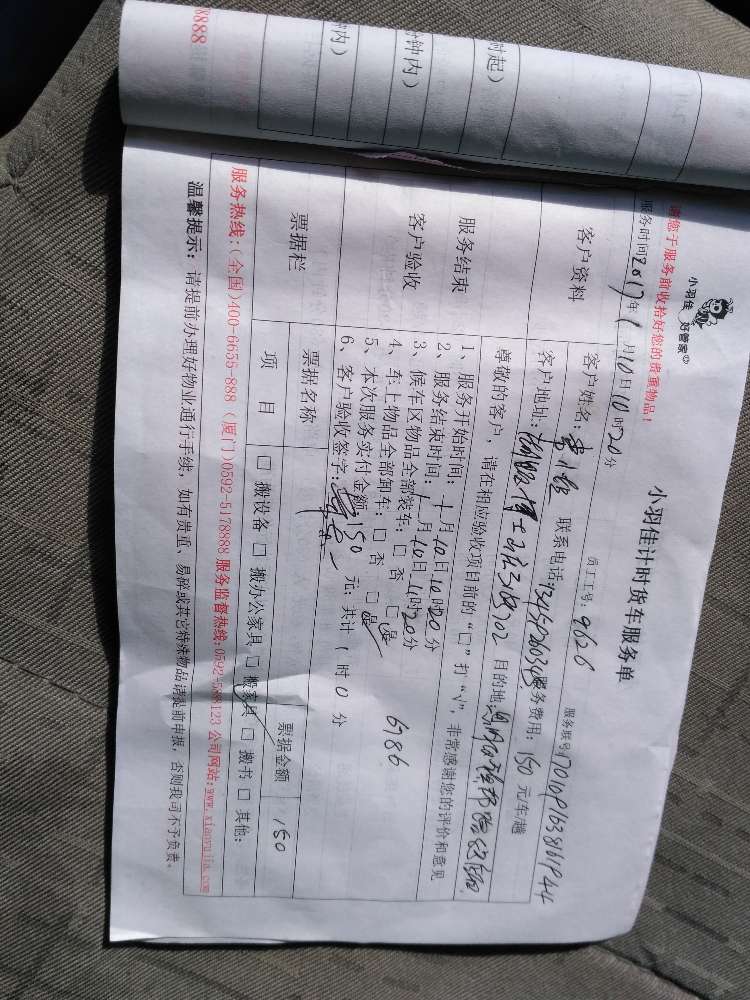 8888
时起)
钟内)
钟内)
请您于服务前收拾好您的贵重物品!
小羽佳 好管家
小羽佳计时货车服务单
服务时间2017年1月10日10时20分 员工工号: 9626 服务账号
客户资料
客户姓名: 联系电话: 服务费用: 150 元/车/趟
客户地址: 目的地:
尊敬的客户, 请在相应验收项目前的“□”打“√”, 非常感谢您的评价和意见
服务结束
客户验收
1、服务开始时间: 1月10日10时20分
2、服务结束时间: 1月10日11时20分
3、候车区物品全部装车: □否 □是
4、车上物品全部卸车: □否 □是
5、本次服务实付金额: 150 元; 共计 1 时 0 分
6、客户验收签字:
6786
票据栏
票据名称 票据金额 150
项目 □搬设备 □搬办公家具 □搬家具 □搬书 □其他:
服务热线:(全国)400-6655-888 (厦门)0592-5178888 服务监督热线:0592-5888123 公司网站:www.xiaoyujia.com
温馨提示: 请提前办理好物业通行手续, 如有贵重、易碎或其它特殊物品请提前申报, 否则我司不予负责。